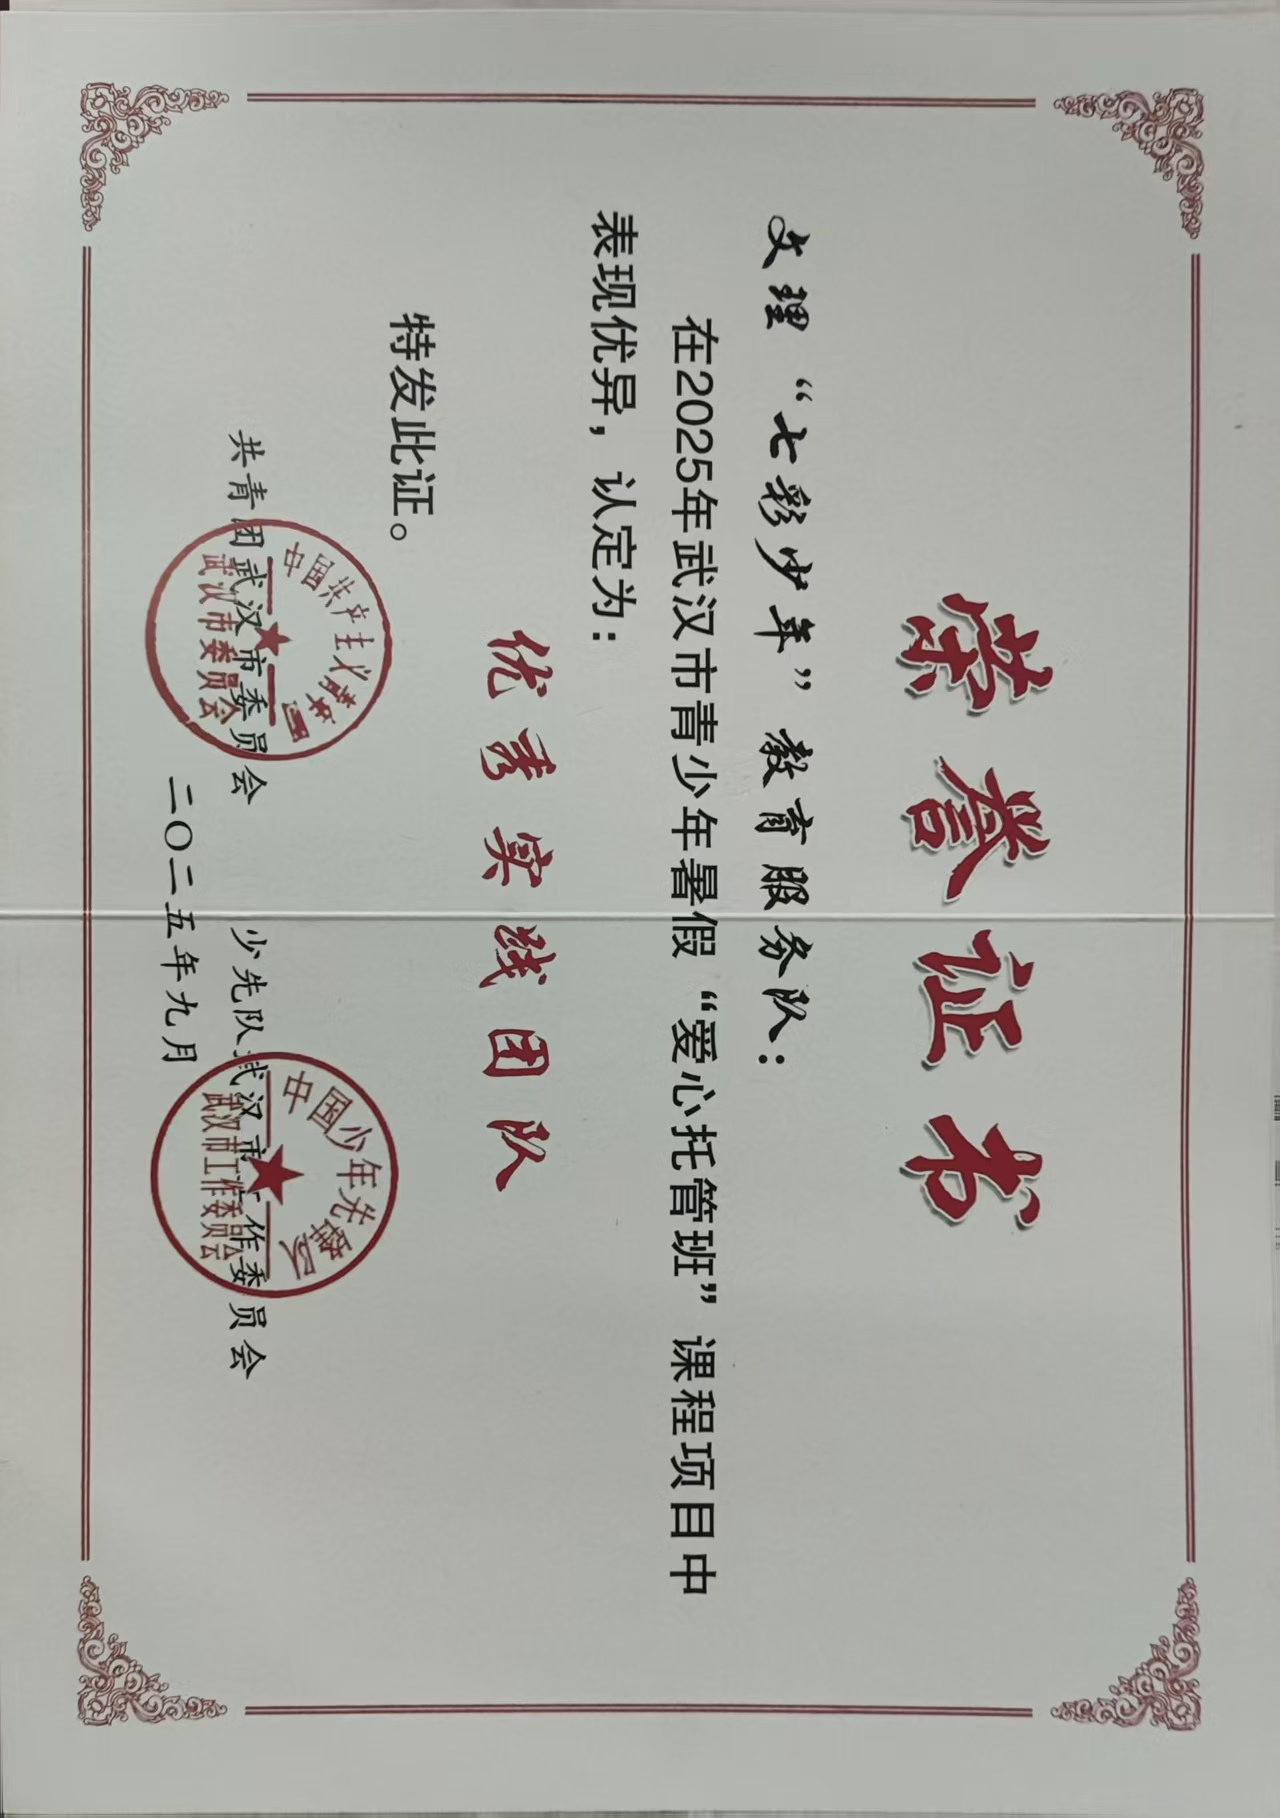 荣誉证书
文理“七彩少年”教育服务队：
在2025年武汉市青少年暑假“爱心托管班”课程项目中
表现优异，认定为：
优秀实践团队
特发此证。
共青团武汉市委员会 少先队武汉市工作委员会
二〇二五年九月
中国共产主义青年团
武汉市委员会
中国少年先锋队
武汉市工作委员会